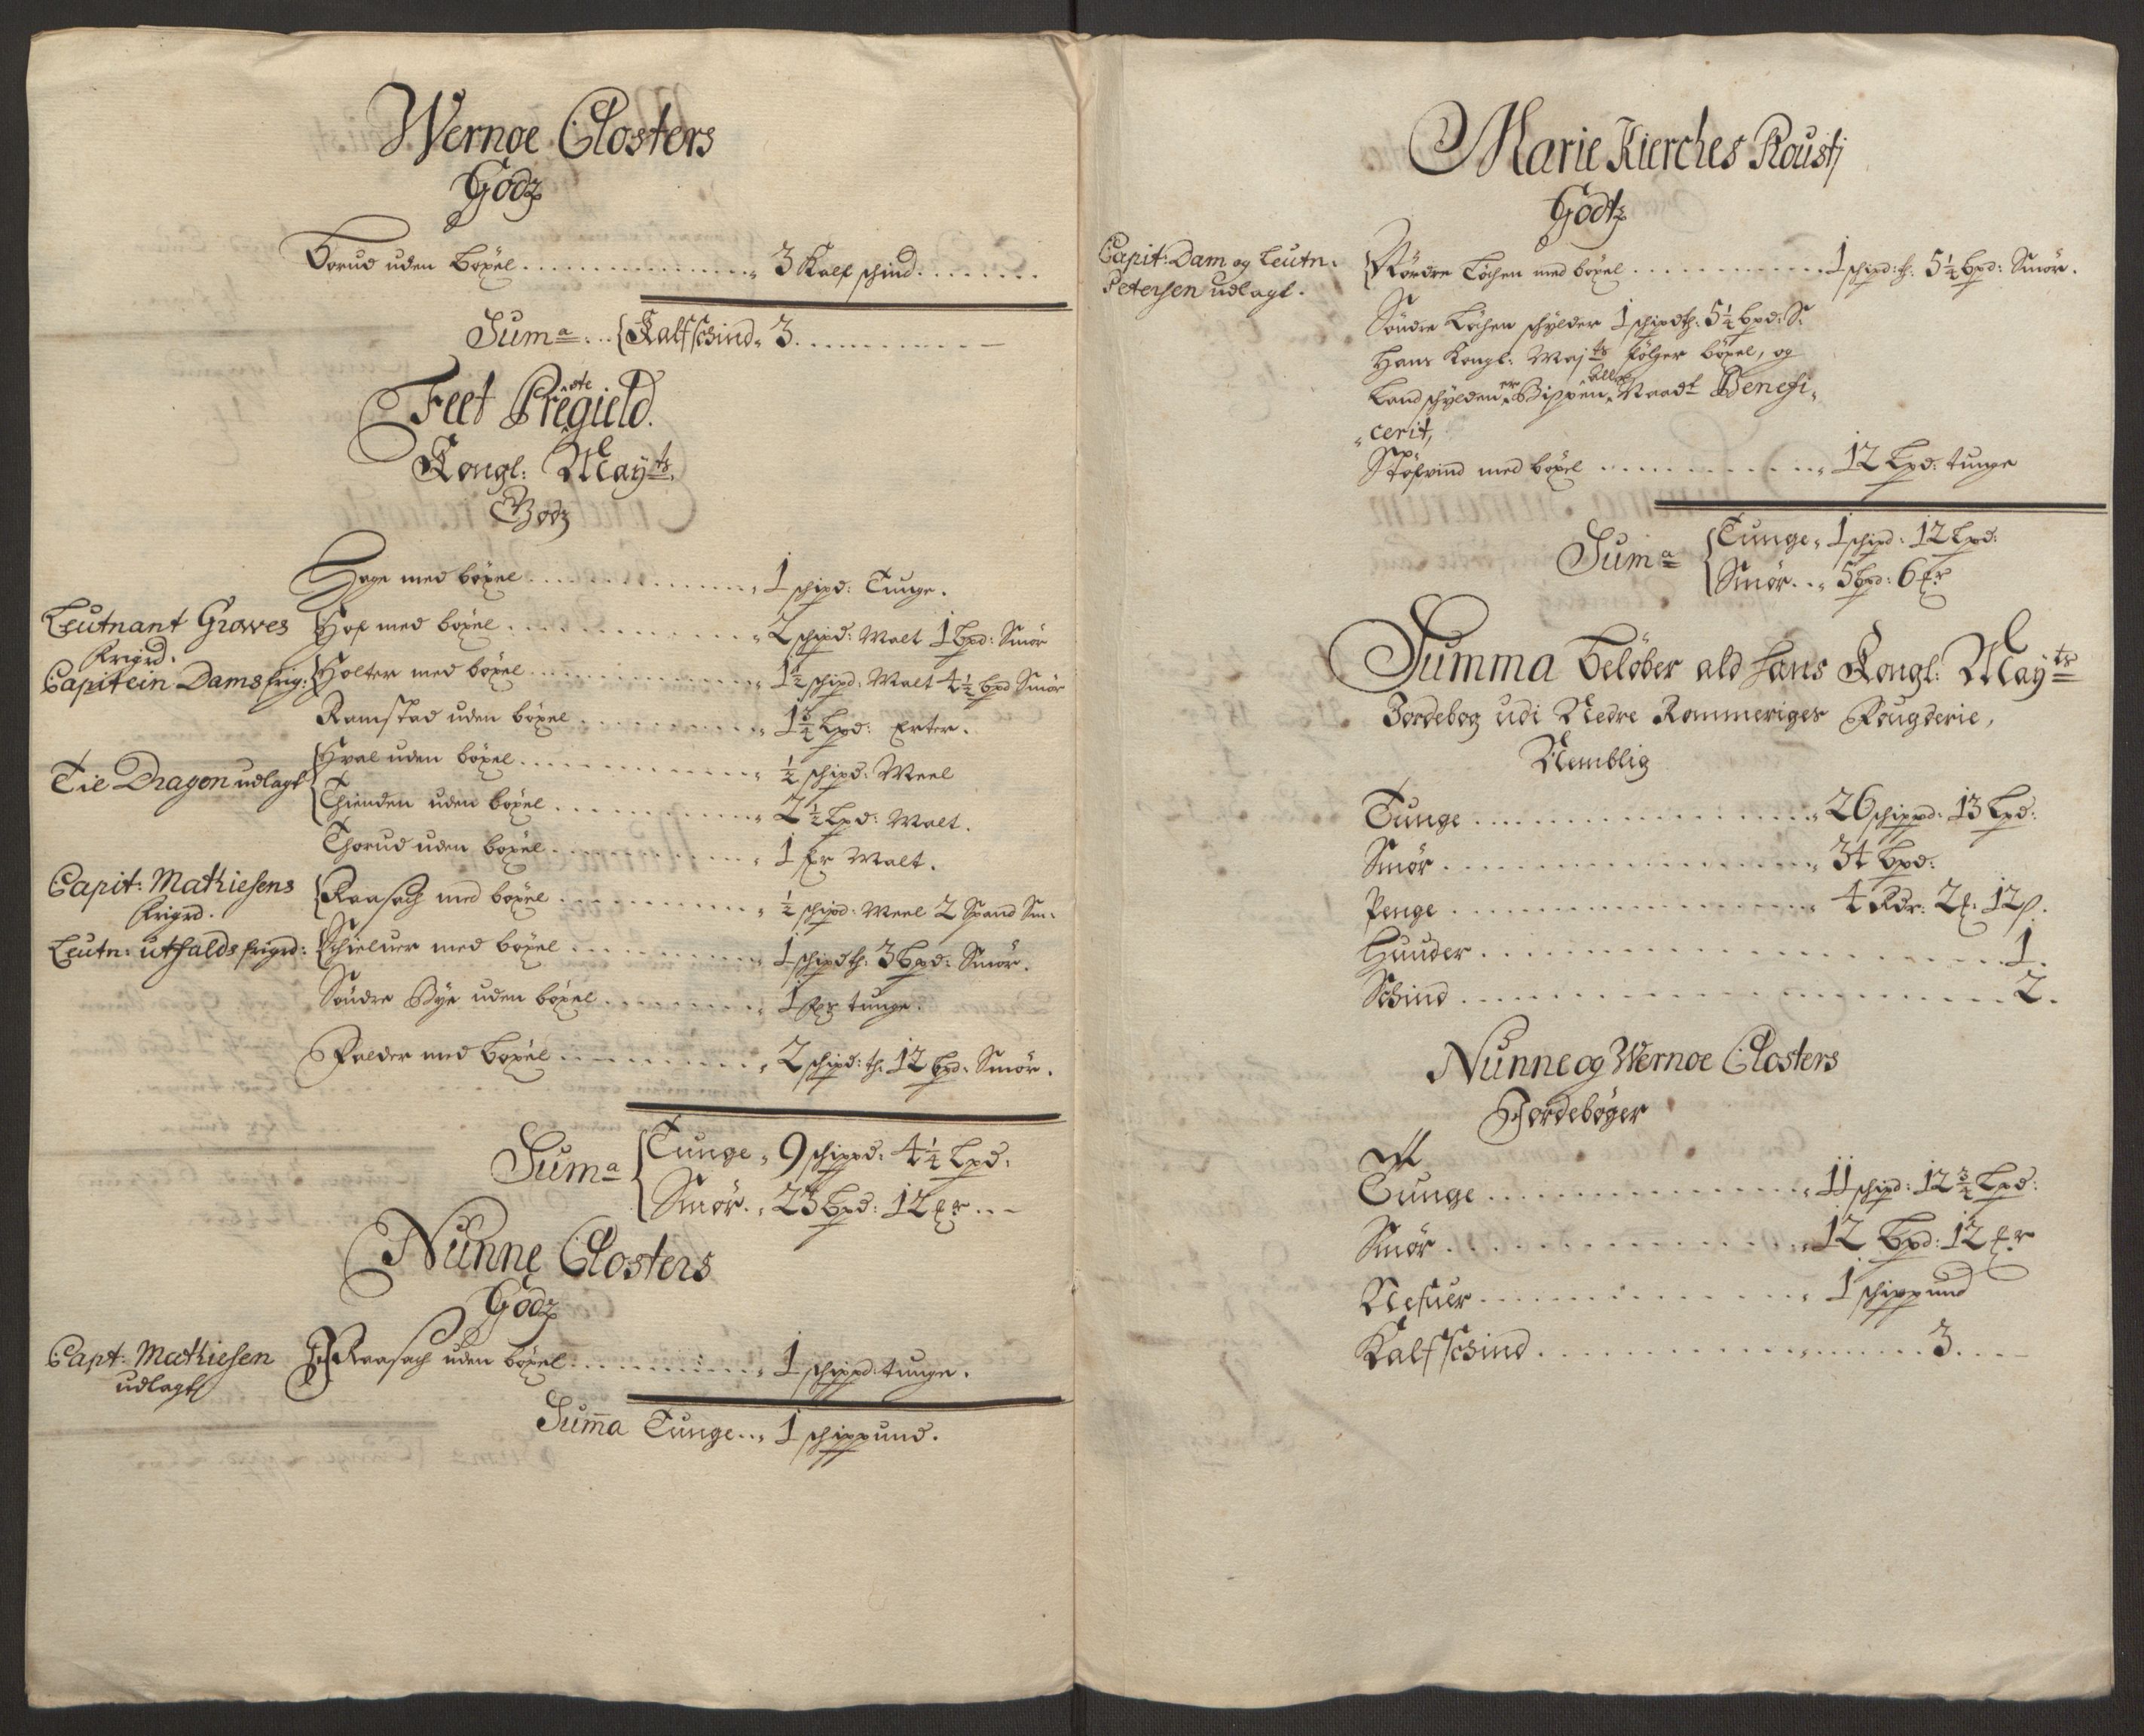 Wernoe Closters
Godz
Borud uden böxel . . . . 3 Kalf schind . . . .
Suma . . { Kalfschind 3 . . . .
Feet Prestegield.
Kongl: Mayts
Godz
Hage med böxel . . . . 1 schipd: Tunge.
Leutnant Growes Krigrd. { Hof med böxel . . . . 2 schipd: Malt 1 bpd: Smör
Capitein Dams krig: { Holter med böxel . . . . 1½ schipd: Malt 4½ bpd Smör
Ramstad uden böxel . . . . 1¾ Lpd: Erter.
Til Dragon udlagt { Hval uden böxel . . . . ½ schipd: Meel
Thienden uden böxel . . . . 2½ Lpd: Malt.
Thorud uden böxel . . . . 1 fr Malt.
Capit: Mathiesens krigrd. { Raasach med böxel . . . . ½ schipd: Meel 2 Spand Sm:
Leutn: utfalds krigrd: { Schieluer med böxel . . . . 1 schipdth: 3 bpd: Smör.
Söndre Bye uden böxel . . . . 1 fr tunge.
Falder med böxel . . . . 2 schipd: th: 12 bpd: Smör.
Suma { Tunge 9 schippd: 4¼ Lpd:
Smör . 23 bpd: 12 Mr . . -
Nunne Closters
Godz
Capt: Mathiesen udlagt Raasach uden böxel . . . . 1 schippd: tunge.
Summa Tunge . . 1 schippund.
Marie Kierches Rousti
Godtz
Capit: Dam og Leutn. Petersen udlagt. { Nördre Löchen med böxel . . . . 1 schipd: th: 5¼ bpd: Smör.
Söndre Löchen schylder 1 schipdth: 5¼ bpd: S:
Hans Kongl: Majts fölger böxel, og
Landschylden er Bispen Naadt Benefi„
„cerit,
Töfsind med böxel . . . . 12 Lpd: tunge
Suma { Tunge 1 schipd: 12 Lpd:
Smör . . 5 bpd: 6 Mr
Summa Belöber ald Hans Kongl: Mayts
Jordebog udi Nedre Rommeriges Fougderie,
Nemblig
Tunge . . . . 26 schippd: 13 Lpd:
Smör . . . . 34 bpd:
Penge . . . . 4 Rdr: 2 12
Huuder . . . . 1.
Schind . . . . 2.
Nunne og Wernoe Closters
Jordebøger
Tunge . . . . 11 schipd: 12¾ Lpd:
Smör . . . . 12 bpd: 12 Mr
Nefuer . . . . 1 schippund
Kalfschind . . . . 3 . . -